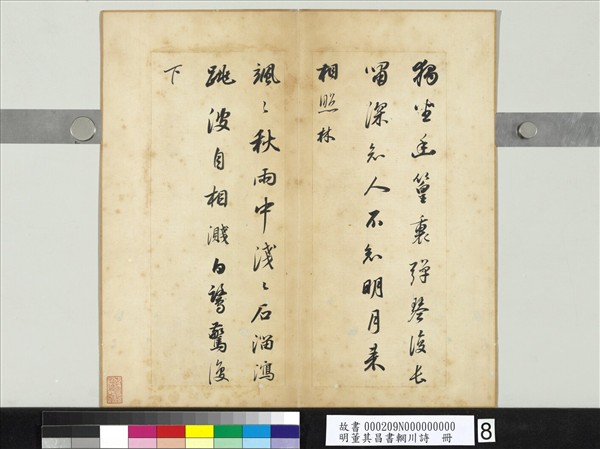 獨坐幽篁裏彈琴復長
嘯深林人不知明月來
相照林
颯〻秋雨中淺〻石溜瀉
跳波自相濺白鷺驚復
下
故書 000209N000000000
明董其昌書輞川詩 冊
8